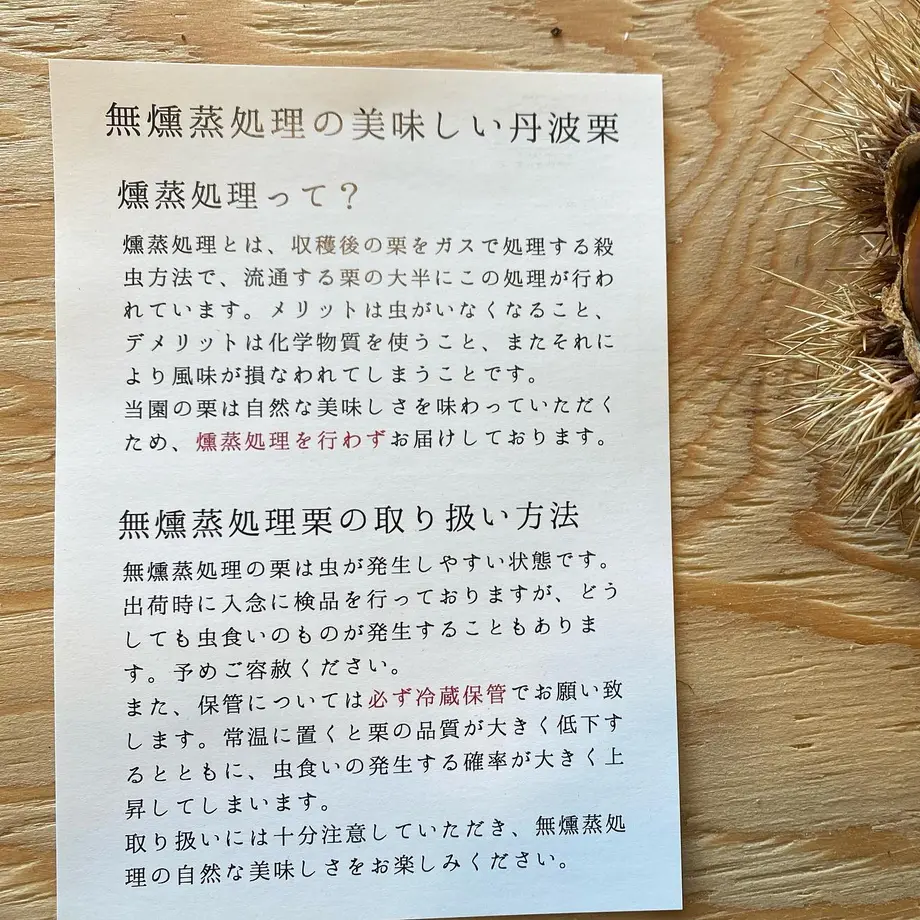 無燻蒸処理の美味しい丹波栗
燻蒸処理って？
燻蒸処理とは、収穫後の栗をガスで処理する殺
虫方法で、流通する栗の大半にこの処理が行わ
れています。メリットは虫がいなくなること、
デメリットは化学物質を使うこと、またそれに
より風味が損なわれてしまうことです。
当園の栗は自然な美味しさを味わっていただく
ため、燻蒸処理を行わずお届けしております。
無燻蒸処理栗の取り扱い方法
無燻蒸処理の栗は虫が発生しやすい状態です。
出荷時に入念に検品を行っておりますが、どう
しても虫食いのものが発生することもありま
す。予めご容赦ください。
また、保管については必ず冷蔵保管でお願い致
します。常温に置くと栗の品質が大きく低下す
るとともに、虫食いの発生する確率が大きく上
昇してしまいます。
取り扱いには十分注意していただき、無燻蒸処
理の自然な美味しさをお楽しみください。